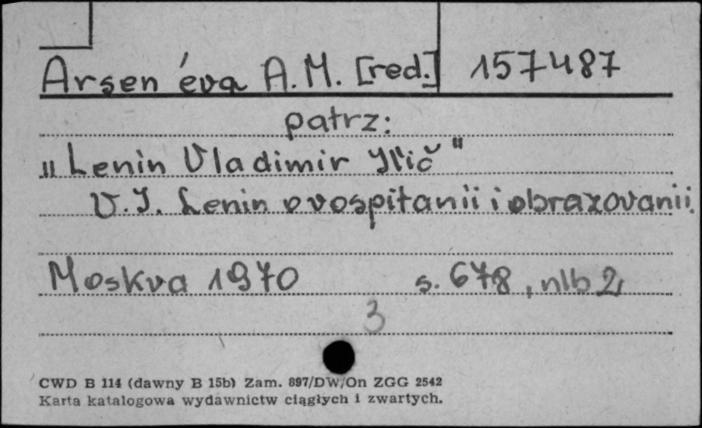 Arsen'eva A.M. [red.] 157487
patrz:
"Lenin Vladimir Il'ič"
V.I. Lenin o vospitanii i obrazovanii.
Moskva 1970 s. 678, nlb 2
3
CWD B 114 (dawny B 15b) Zam. 897/DW/On ZGG 2542
Karta katalogowa wydawnictw ciągłych i zwartych.